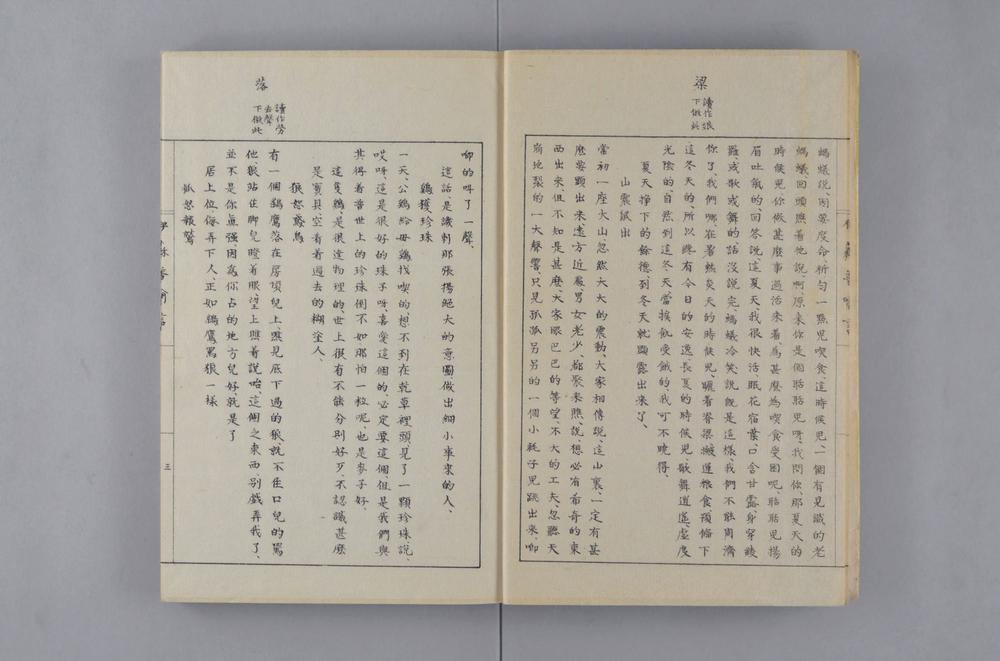 梁
讀作娘
下倣此
螞蟻說、因要度命祈勻一點兒喫食這時候兒、一個有見識的老
螞蟻、回頭瞧着他說、啊、原來你是個聒聒兒呀、我問你、那夏天的
時候兒、你做甚麼事過活來着、為甚麼為喫食受困呢、聒聒兒揚
眉吐氣的、回答說、這夏天、我很快活、眠花宿葉、口含甘露、身穿綾
羅、或歌或舞的、話沒說完、螞蟻冷笑說、旣是這樣、我們不能周濟
你了、我們哪、在暑熱炎天的時候兒、曬着脊梁、搬運粮食預備下
這冬天的、所以纔有今日的安逸、長夏的時候兒、歌舞逍遙、虛度
光陰的、自然到這冬天當挨飢受餓的、我可不曉得、
夏天掙下的餘德、到冬天就顯露出來了、
山震鼠出
當初一座大山忽然大大的震動、大家相傳說、這山裏、一定有甚
麼要顯出來、遠方近處、男女老少、都聚來瞧、說、想必有希奇的東
西出來、但不知是甚麼、大家眼巴巴的等望、不大的工夫、忽聽天
崩地裂的一大聲響、只見孤孤另另的一個小耗子兒跳出來、唧
落
讀作勞
去聲
下倣此
唧的呌了一聲、
這話、是譏刺那張揚絕大的意圖做出細小事來的人、
鷄獲珍珠
一天、公鷄給母鷄找喫的、想不到在乾草裡頭、見了一顆珍珠、說、
哎呀、這是很好的珠子呀、喜愛這個的、必定要這個、但是我們與
其得着普世上的珍珠、倒不如那怕一粒呢、也是麥子好、
這隻鷄、是很達物理的、世上很有不能分別好歹、不認識甚麼
是寶貝、空看着過去的糊塗人、
狼怒鳶鳥
有一個鷂鷹落在房頂兒上、瞧見底下過的狼、就不住口兒的罵
他、狼站住脚兒瞪着眼、望上瞧着說、咍、這個之東西、別戲弄我了、
並不是你無強、因為你占的地方兒好就是了
居上位、侮弄下人、正如鷂鷹罵狼一樣
狐怒鵝鷲
三